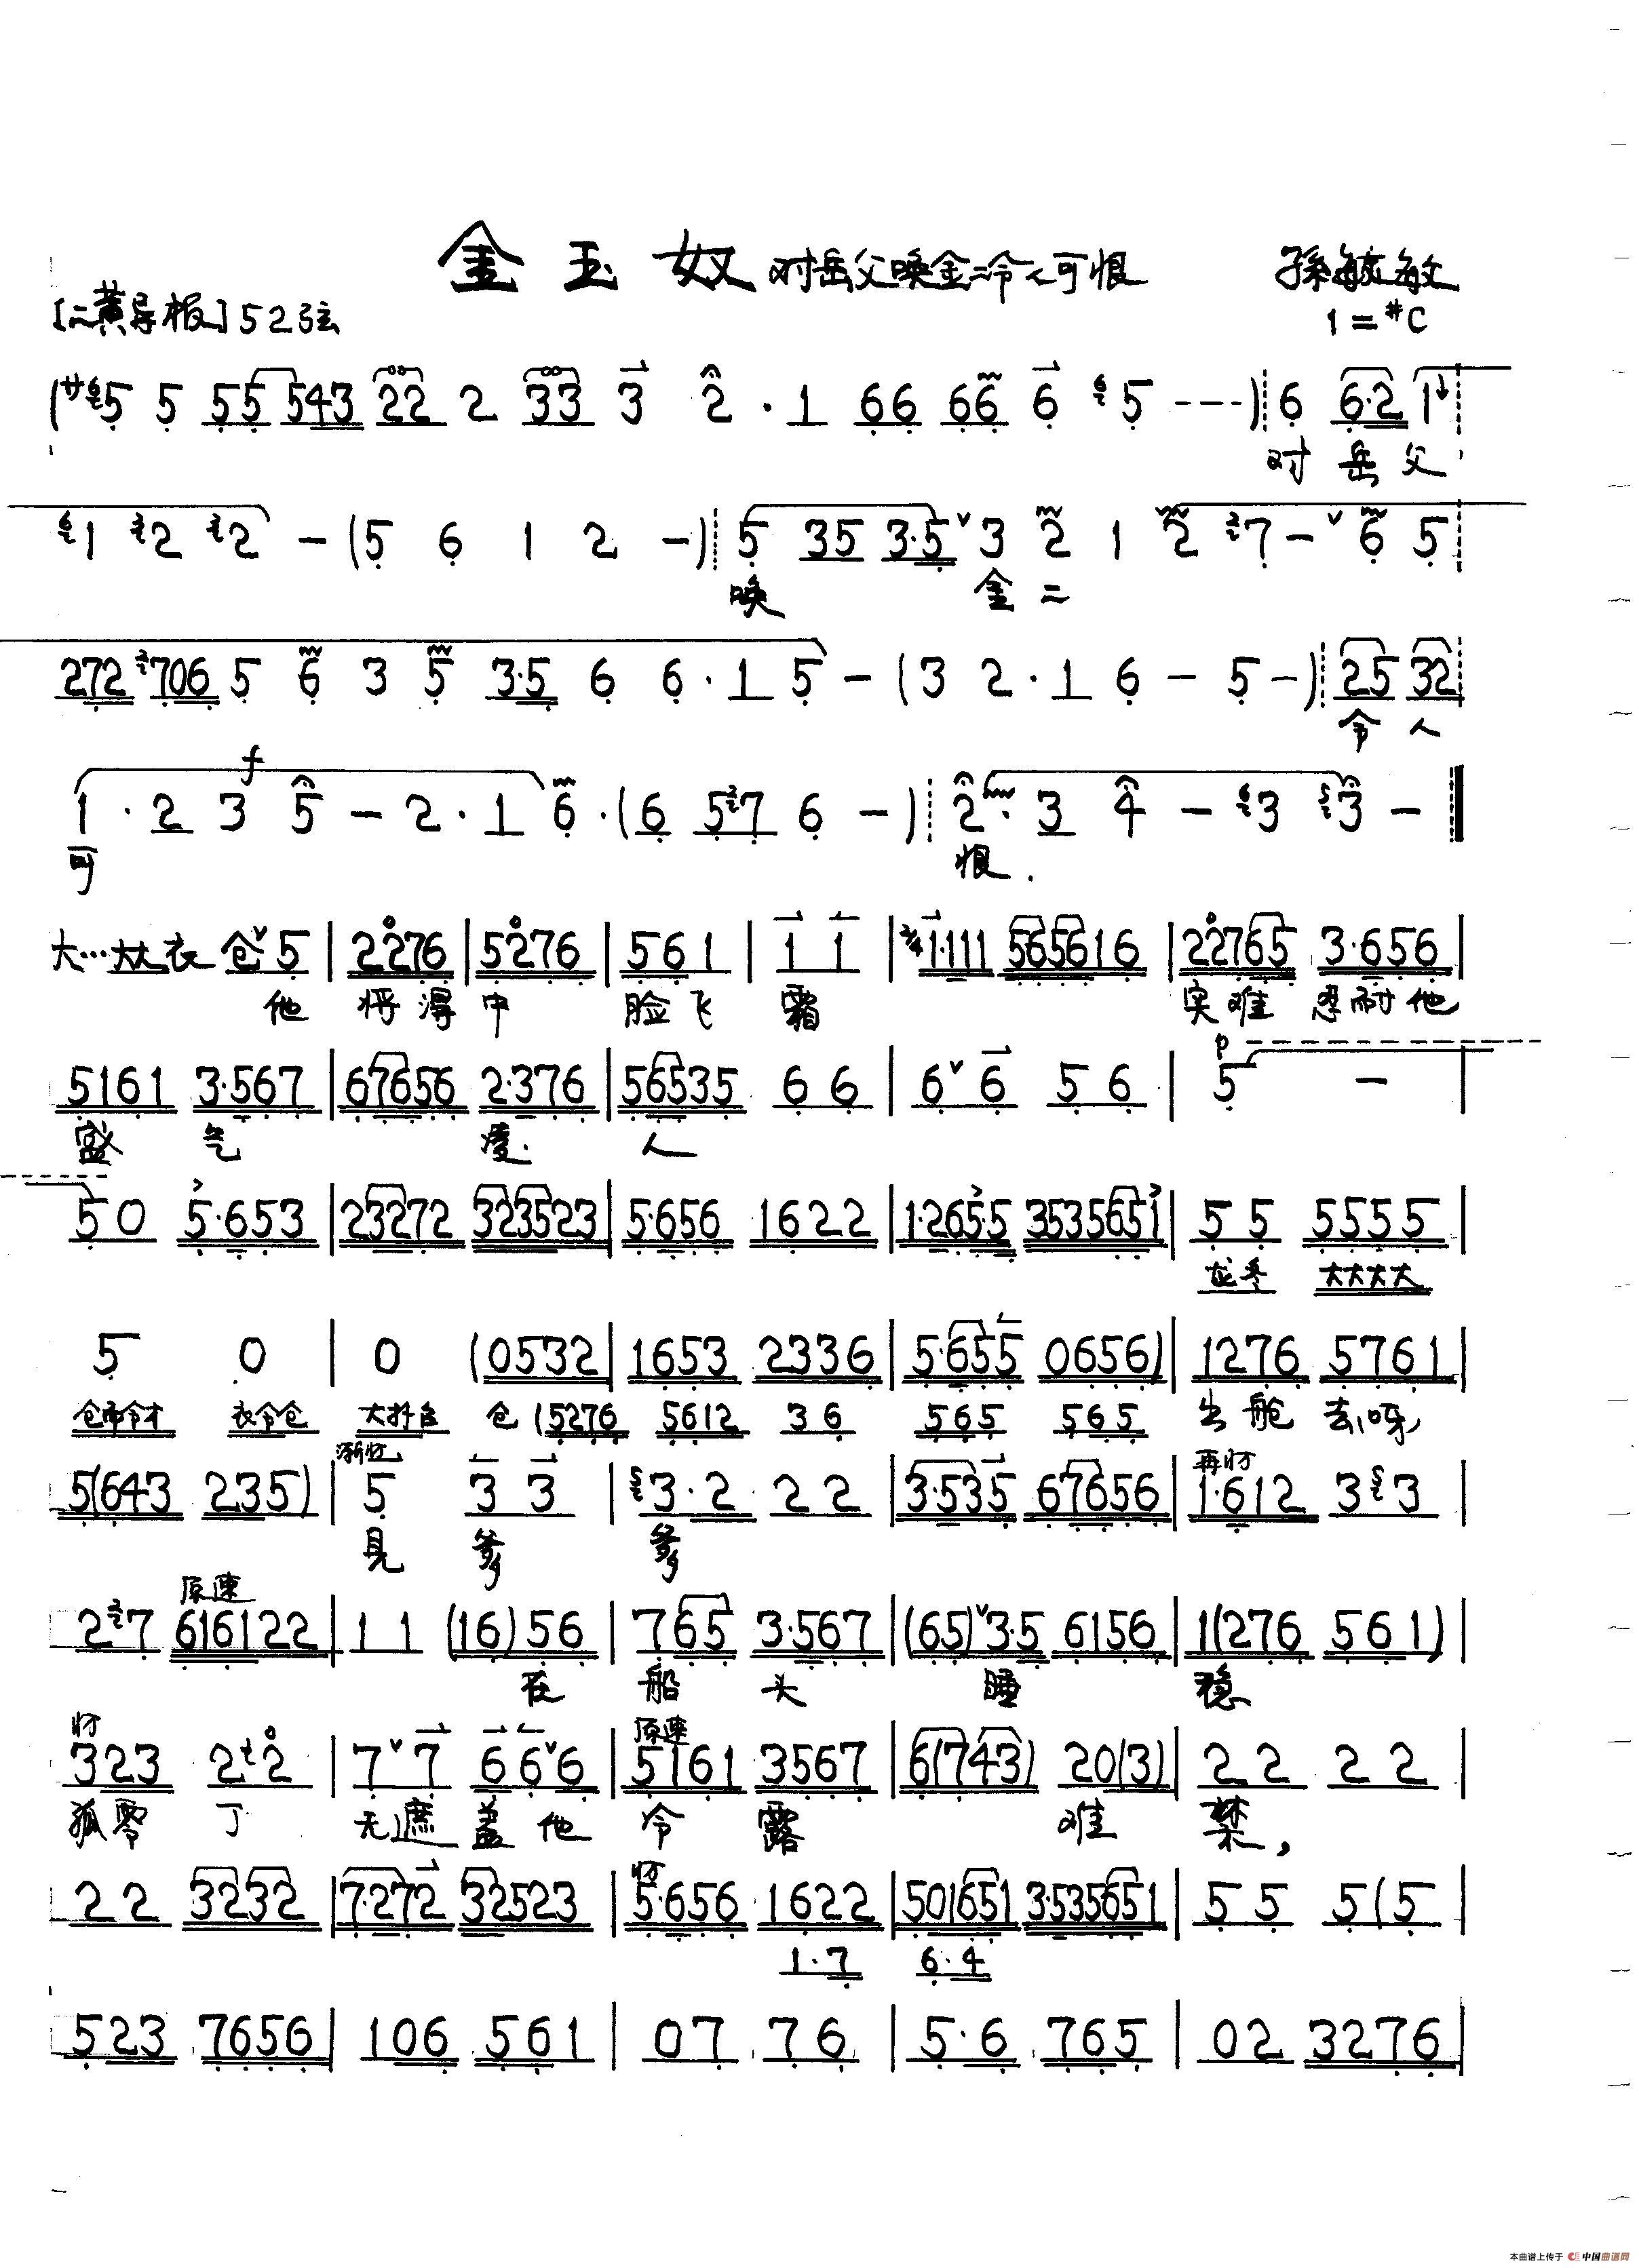 金玉奴 对岳父唤金二令人可恨 孫毓敏
[二黄导板] 52弦 1=#C
(サ 5 5 55 543 22 2 33 3 2·1 66 66 6 5 ---) 6 6·2 1
对岳父
1 2 2 - (5 6 1 2 -) 5 35 3·5 3 2 1 2 7 - 6 5
唤 金二
272 706 5 6 3 5 3·5 6 6·1 5 - (3 2·1 6 - 5 -) 25 32
令人
f
1·2 3 5 - 2·1 6·(6 57 6 -) 2·3 4 - 3 3 -
可 恨.
大…大大衣 仓 5 | 2276 | 5276 | 561 | 1 1 | 2/4 1·111 565616 | 22765 3·656 |
他 将得中 脸飞霜 实难忍耐他
5161 3·567 | 67656 2·376 | 56535 66 | 6 6 56 | 5 - |
盛气 凌. 人
p
50 5·653 | 23272 323523 | 5·656 1622 | 1·2655 3535651 | 55 5555 |
龙冬 大大大大
5 0 | 0 (0532 | 1653 2336 | 5·655 0656) | 1276 5761 |
衣令仓 仓 (5276 5612 36 565 565 出舱去呀
5(643 235) | 5 3 3 | 3·2 22 | 3·535 67656 | 1·612 3 3 |
见爹爹
原速
27 616122 | 11 (16)56 | 765 3·567 | (65)3·5 6156 | 1(276 561) |
在船头睡稳
原速
323 2 2 | 7 7 6 6 6 | 5161 3567 | 6(743) 20(3) | 22 22 |
孤零丁 无遮盖他冷露 难禁,
22 3232 | 7·272 32523 | 5·656 1622 | 501651 3·535651 | 55 5(5
1·7 6·4
523 7656 | 106 561 | 07 76 | 5·6 765 | 02 3276 |
本曲谱上传于 中国曲谱网